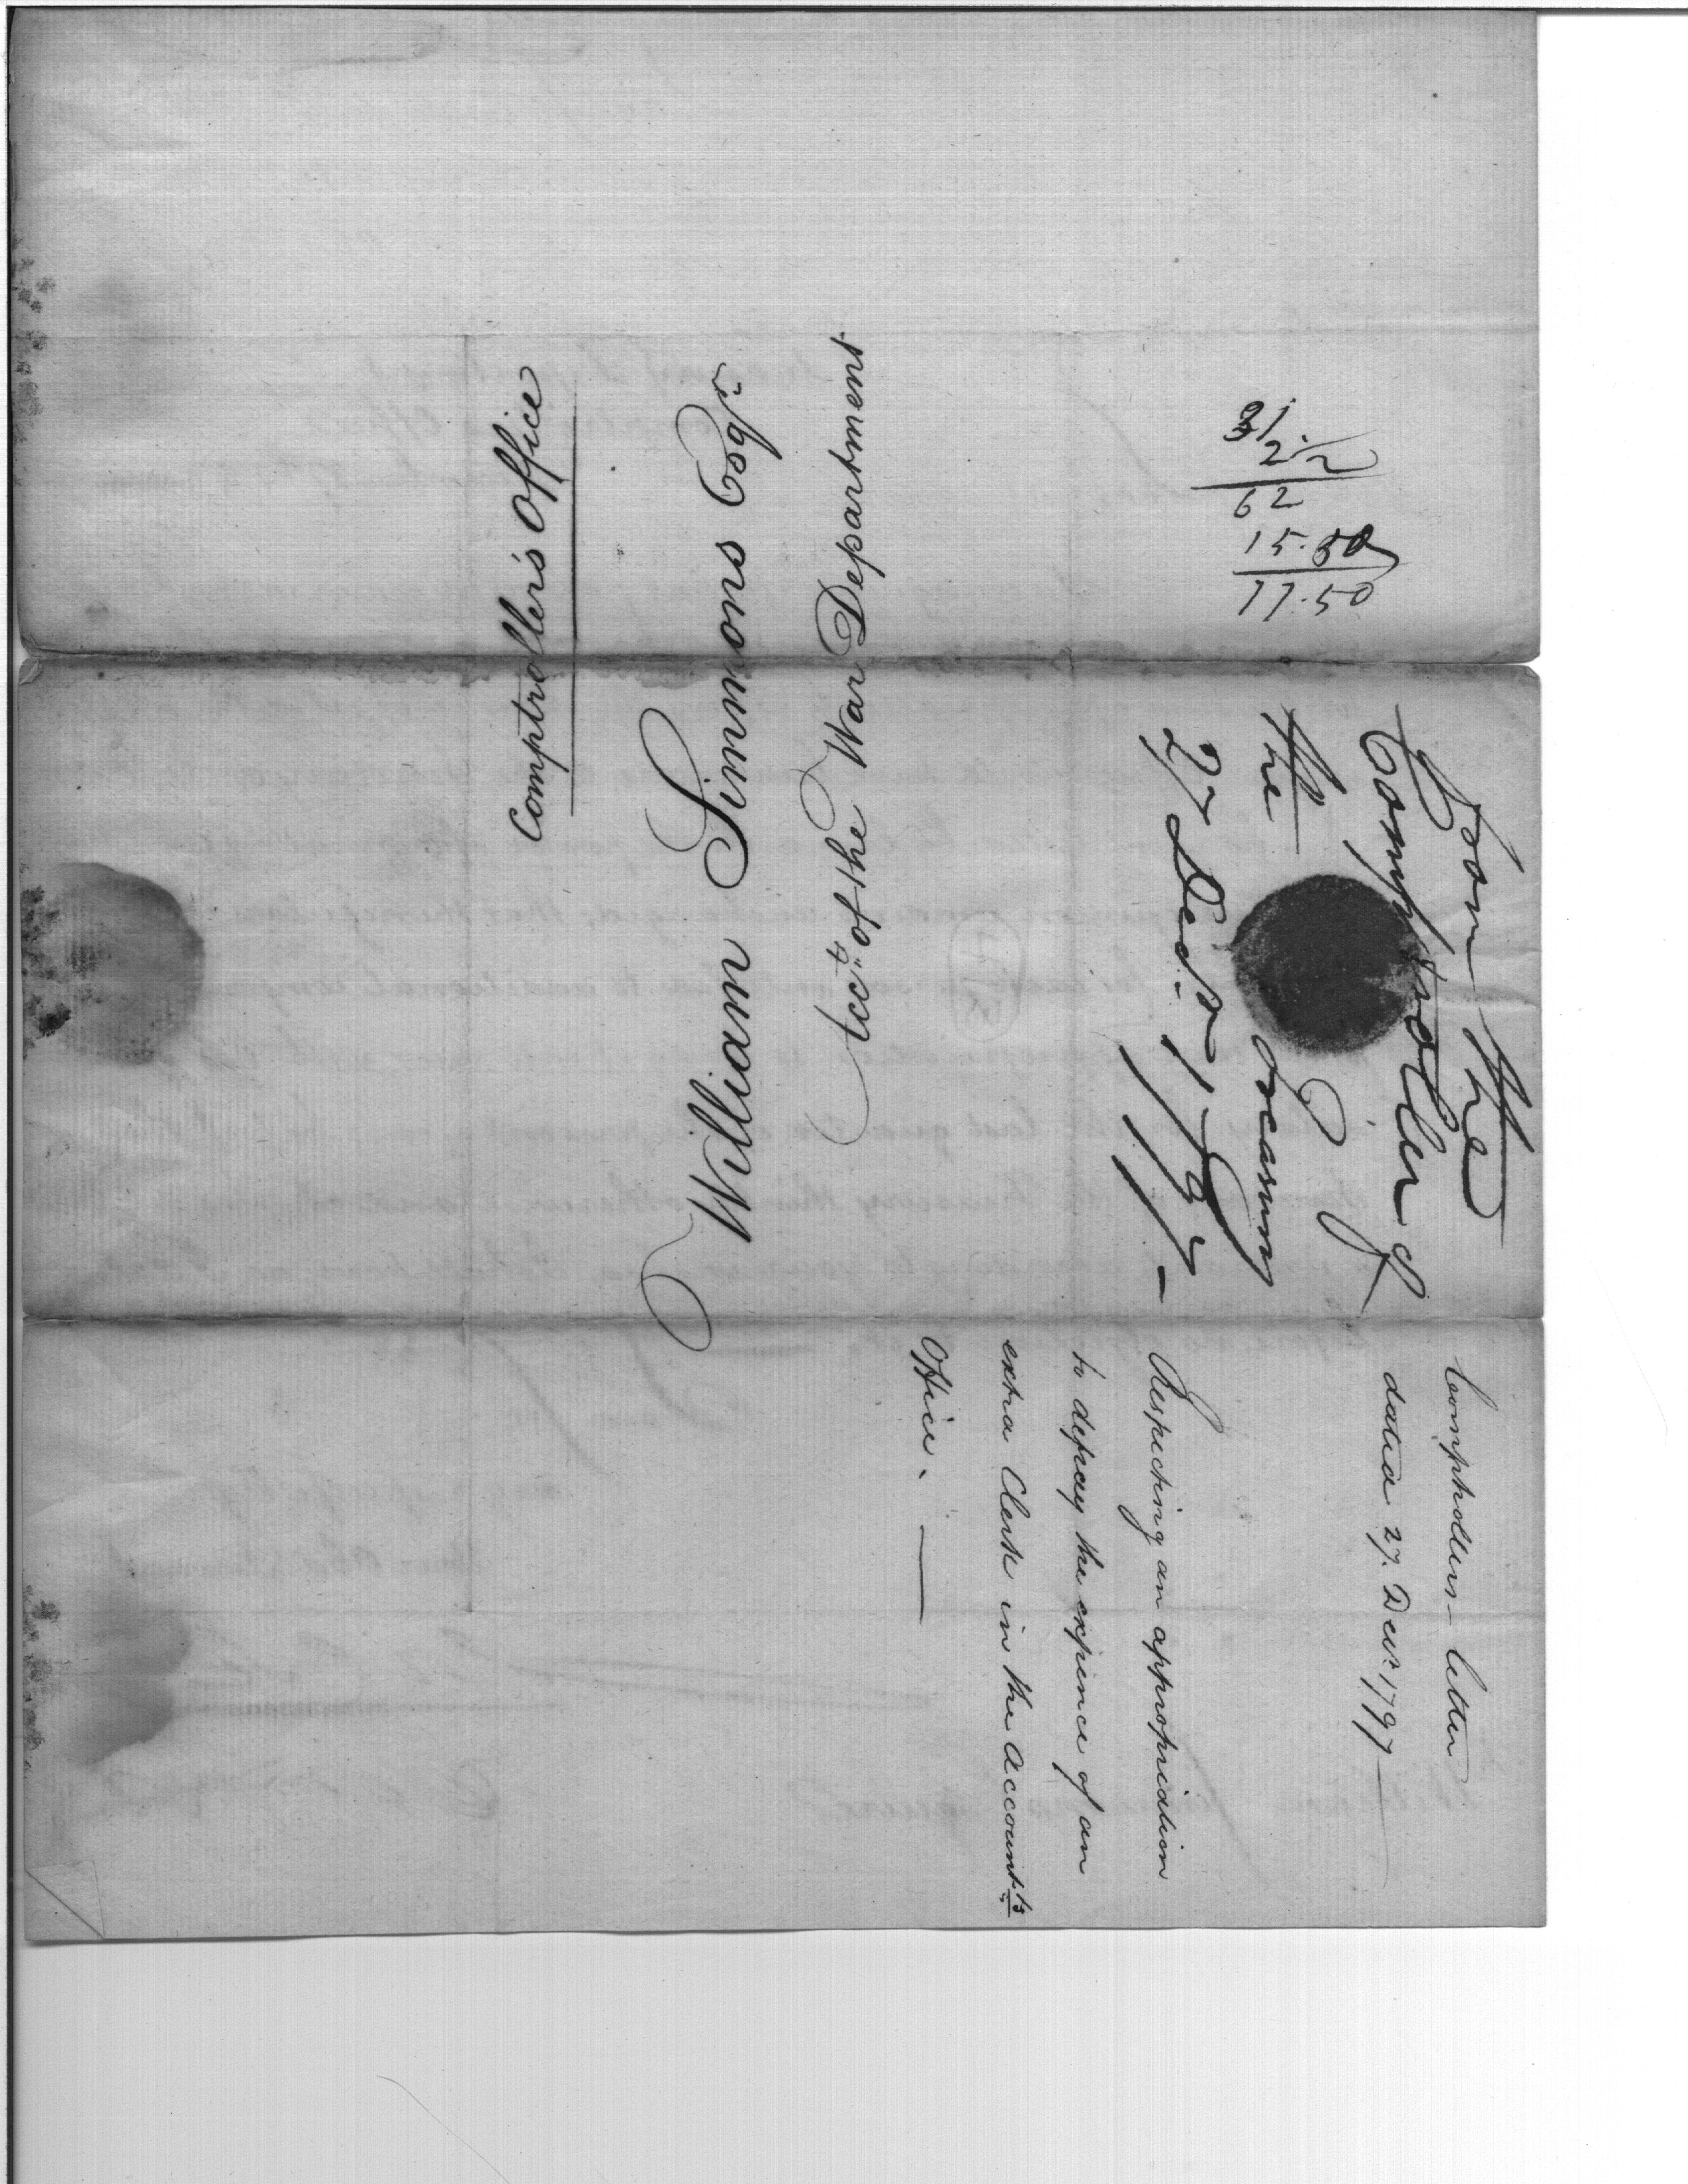 Comptroller's Office
William Simmons Esqr.
Acct. of the War Department
31
2.½
62
15.50
77.50
From the
Comptroller of
the Treasury
27 Decr. 1797 —
Comptrollers — letter
dated 27. Decr. 1797 —
Respecting an appropriation
to defray the expence of an
extra Clerk in the Accountts
Office. —